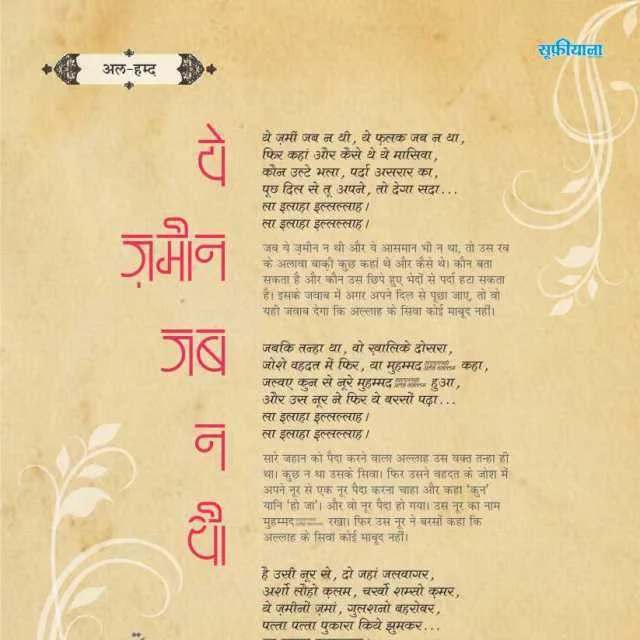 सूफ़ीयाना
अल-हम्द
ये
ज़मीन
जब
न
थी
ये ज़मीं जब न थी, ये फ़लक जब न था,
फिर कहां और कैसे थे ये मासिवा,
कौन उल्टे भला, पर्दा असरार का,
पूछ दिल से तू अपने, तो देगा सदा...
ला इलाहा इल्लल्लाह।
ला इलाहा इल्लल्लाह।
जब ये ज़मीन न थी और ये आसमान भी न था, तो उस रब
के अलावा बाकी कुछ कहां थे और कैसे थे। कौन बता
सकता है और कौन उस छिपे हुए भेदों से पर्दा हटा सकता
है। इसके जवाब में अगर अपने दिल से पूछा जाए, तो वो
यही जवाब देगा कि अल्लाह के सिवा कोई माबूद नहीं।
जबकि तन्हा था, वो ख़ालिके दोसरा,
जोशे वहदत में फिर, या मुहम्मद कहा,
जल्वए कुन से नूरे मुहम्मद हुआ,
और उस नूर ने फिर ये बरसों पढ़ा...
ला इलाहा इल्लल्लाह।
ला इलाहा इल्लल्लाह।
सारे जहान को पैदा करने वाला अल्लाह उस वक्त तन्हा ही
था। कुछ न था उसके सिवा। फिर उसने वहदत के जोश में
अपने नूर से एक नूर पैदा करना चाहा और कहा 'कुन'
यानि 'हो जा'। और वो नूर पैदा हो गया। उस नूर का नाम
मुहम्मद रखा। फिर उस नूर ने बरसों कहा कि
अल्लाह के सिवा कोई माबूद नहीं।
है उसी नूर से, दो जहां जलवागर,
अर्शो लौहो क़लम, चर्खो शम्सो क़मर,
ये ज़मीनो ज़मां, गुलशनो बहरोबर,
पत्ता पत्ता पुकारा किये झुमकर...